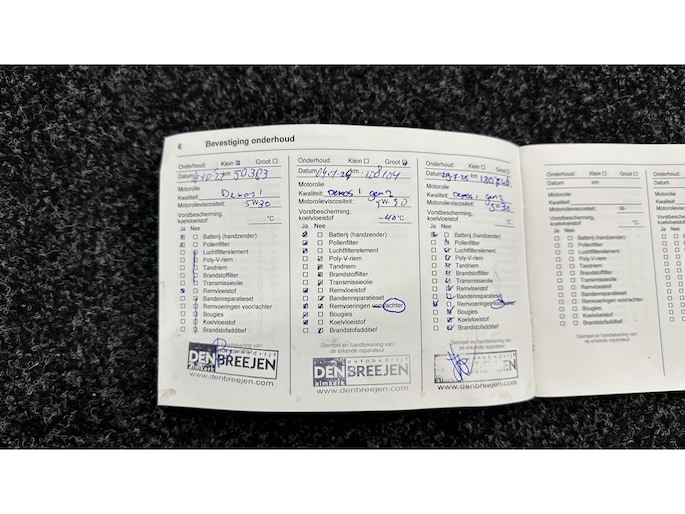 6 Bevestiging onderhoud
Onderhoud: Klein Groot
Datum km 50383
Motorolie
Kwaliteit: Dexos 1
Motorolieviscositeit: 5W30
Vorstbescherming,
koelvloeistof °C
Ja Nee
Batterij (handzender)
Pollenfilter
Luchtfilterelement
Poly-V-riem
Tandriem
Brandstoffilter
Transmissieolie
Remvloeistof
Bandenreparatieset
Remvoeringen voor/achter
Bougies
Koelvloeistof
Brandstofadditief
DEN BREEJEN
almkerk
www.denbreejen.com
Onderhoud: Klein Groot
Datum km
Motorolie
Kwaliteit: Dexos 1 gen 2
Motorolieviscositeit: 5W-30
Vorstbescherming,
koelvloeistof -40°C
Ja Nee
Batterij (handzender)
Pollenfilter
Luchtfilterelement
Poly-V-riem
Tandriem
Brandstoffilter
Transmissieolie
Remvloeistof
Bandenreparatieset
Remvoeringen voor/achter
Bougies
Koelvloeistof
Brandstofadditief
Stempel en handtekening van
de erkende reparateur
autobedrijf
DEN BREEJEN
almkerk
www.denbreejen.com
Onderhoud: Klein Groot
Datum km
Motorolie
Kwaliteit: Dexos 1 gen 2
Motorolieviscositeit: 5W-30
Vorstbescherming,
koelvloeistof
Ja Nee
Batterij (handzender)
Pollenfilter
Luchtfilterelement
Poly-V-riem
Tandriem
Brandstoffilter
Transmissieolie
Remvloeistof
Bandenreparatieset
Remvoeringen
Bougies
Koelvloeistof
Brandstofadditief
Stempel en handtekening van
de erkende reparateur
autobedrijf
DEN BREEJEN
www.denbreejen.com
Onderhoud: Klein Groot
Datum km
Motorolie
Kwaliteit:
Motorolieviscositeit: W-
Vorstbescherming,
koelvloeistof °C
Ja Nee
Batterij (handzender)
Pollenfilter
Luchtfilterelement
Poly-V-riem
Tandriem
Brandstoffilter
Transmissieolie
Remvloeistof
Bandenreparatieset
Remvoeringen voor/achter
Bougies
Koelvloeistof
Brandstofadditief
Stempel en handtekening van
de erkende reparateur